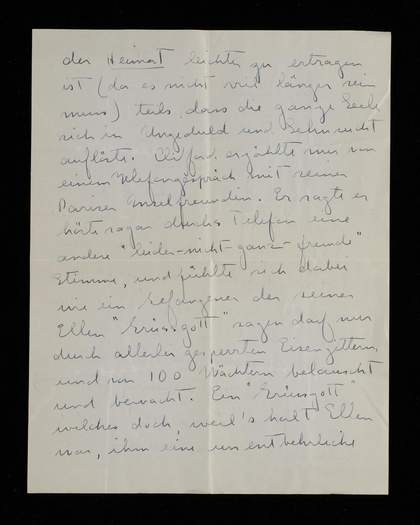 der Heimat leichter zu ertragen
ist (da es nicht viel länger sein
muss) teils, dass die ganze Seele
sich in Ungeduld und Sehnsucht
auflöste. erzählte mir von
einem Telefongespräch mit seiner
Pariser Inselfreundin. Er sagte er
hörte sogar durchs Telefon eine
andere "leider-nicht-ganz-fremde"
Stimme, und fühlte sich dabei
wie ein Gefangener der seiner
Ellen "Grüssgott" sagen darf nur
durch allerlei gesperrten Eisengittern
und von 100 Wächtern belauscht
und bewacht. Ein "Grüssgott"
welches doch, weil's halt Ellen
war, ihm eine unentbehrliche